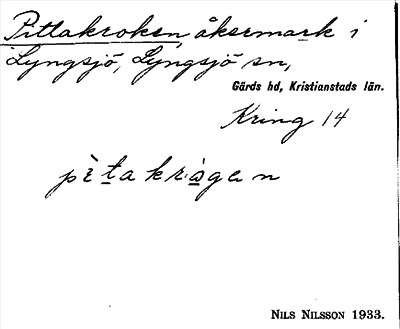 Pittakroken, åkermark i
Lyngsjö, Lyngsjö sn,
Gärds hd, Kristianstads län.
Kring 14
NILS NILSSON 1933.